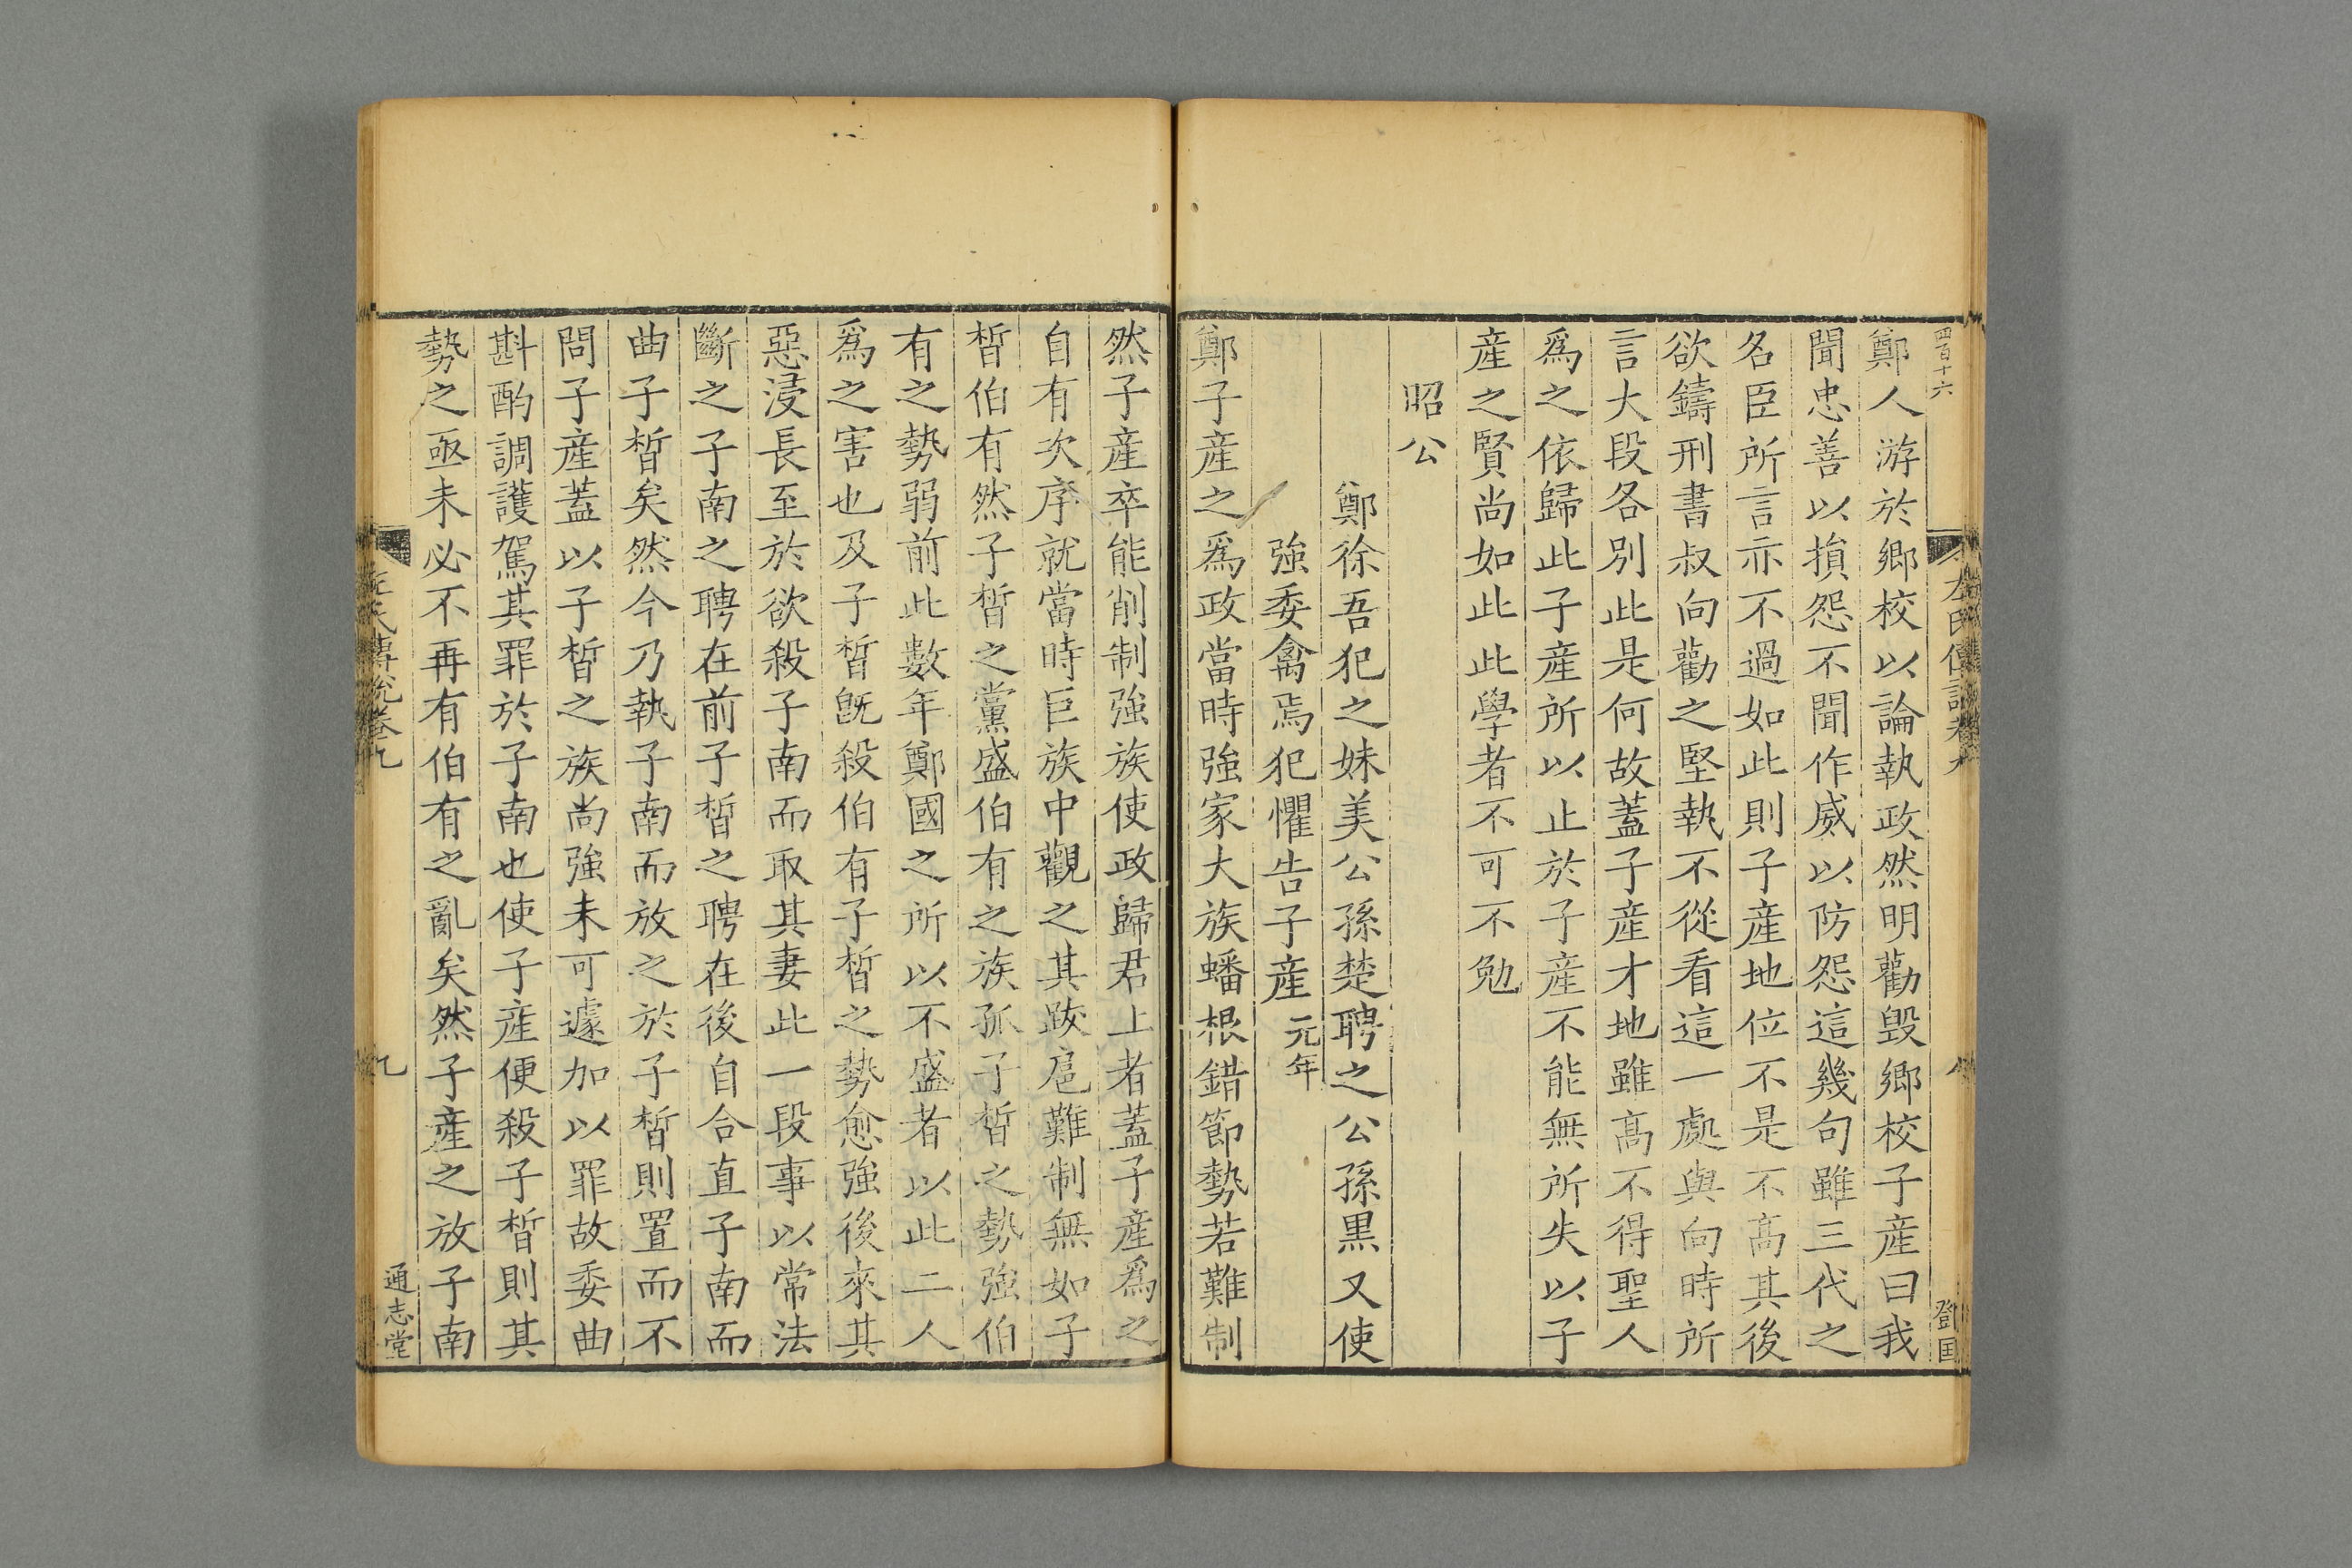 四百十六
左氏傳說卷九
八
鄧国
鄭人游於鄉校以論執政然明勸毁鄉校子産曰我
聞忠善以損怨不聞作威以防怨這幾句雖三代之
名臣所言亦不過如此則子産地位不是不高其後
欲鑄刑書叔向勸之堅執不從看這一處與向時所
言大段各別此是何故蓋子産才地雖高不得聖人
爲之依歸此子産所以止於子産不能無所失以子
産之賢尚如此此學者不可不勉
昭公
鄭徐吾犯之妹美公孫楚聘之公孫黒又使
強委禽焉犯懼告子産元年
鄭子産之爲政當時強家大族蟠根錯節勢若難制
然子產卒能削制強族使政歸君上者蓋子產爲之
自有次序就當時巨族中觀之其跋扈難制無如子
晳伯有然子晳之黨盛伯有之族孤子晳之勢強伯
有之勢弱前此數年鄭國之所以不盛者以此二人
爲之害也及子晳旣殺伯有子晳之勢愈強後來其
惡浸長至於欲殺子南而取其妻此一段事以常法
斷之子南之聘在前子晳之聘在後自合直子南而
曲子晳矣然今乃執子南而放之於子晳則置而不
問子産蓋以子晳之族尚強未可遽加以罪故委曲
斟酌調護駕其罪於子南也使子産便殺子晳則其
勢之亟未必不再有伯有之亂矣然子産之放子南
左氏傳說卷九
九
通志堂